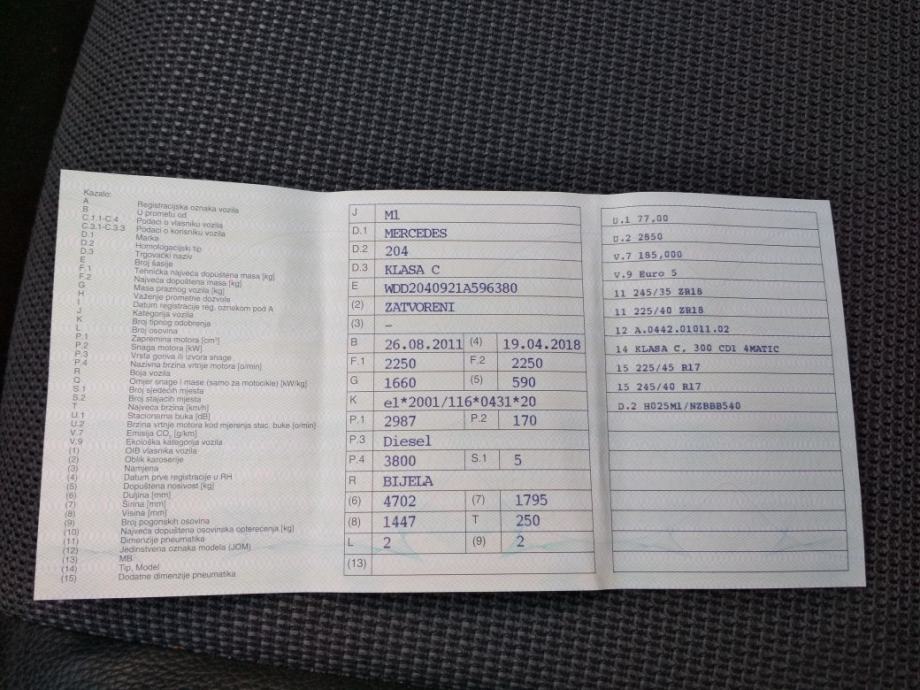 Kazalo:
A Registracijska oznaka vozila
B U prometu od
C.1.1-C.4 Podaci o vlasniku vozila
C.3.1-C.3.3 Podaci o korisniku vozila
D.1 Marka
D.2 Homologacijski tip
D.3 Trgovački naziv
E Broj šasije
F.1 Tehnička najveća dopuštena masa [kg]
F.2 Najveća dopuštena masa [kg]
G Masa praznog vozila [kg]
H Važenje prometne dozvole
I Datum registracije reg. oznakom pod A
J Kategorija vozila
K Broj tipnog odobrenja
L Broj osovina
P.1 Zapremina motora [cm³]
P.2 Snaga motora [kW]
P.3 Vrsta goriva ili izvora snage
P.4 Nazivna brzina vrtnje motora [o/min]
R Boja vozila
Q Omjer snage i mase (samo za motocikle) [kW/kg]
S.1 Broj sjedećih mjesta
S.2 Broj stajaćih mjesta
T Najveća brzina [km/h]
U.1 Stacionarna buka [dB]
U.2 Brzina vrtnje motora kod mjerenja stac. buke [o/min]
V.7 Emisija CO₂ [g/km]
V.9 Ekološka kategorija vozila
(1) OIB vlasnika vozila
(2) Oblik karoserije
(3) Namjena
(4) Datum prve registracije u RH
(5) Dopuštena nosivost [kg]
(6) Duljina [mm]
(7) Širina [mm]
(8) Visina [mm]
(9) Broj pogonskih osovina
(10) Najveća dopuštena osovinska opterećenja [kg]
(11) Dimenzije pneumatika
(12) Jedinstvena oznaka modela (JOM)
(13) MB
(14) Tip, Model
(15) Dodatne dimenzije pneumatika
J M1
D.1 MERCEDES
D.2 204
D.3 KLASA C
E WDD2040921A596380
(2) ZATVORENI
(3) –
B 26.08.2011 (4) 19.04.2018
F.1 2250 F.2 2250
G 1660 (5) 590
K e1*2001/116*0431*20
P.1 2987 P.2 170
P.3 Diesel
P.4 3800 S.1 5
R BIJELA
(6) 4702 (7) 1795
(8) 1447 T 250
L 2 (9) 2
(13)
U.1 77,00
U.2 2850
V.7 185,000
V.9 Euro 5
11 245/35 ZR18
11 225/40 ZR18
12 A.0442.01011.02
14 KLASA C, 300 CDI 4MATIC
15 225/45 R17
15 245/40 R17
D.2 H025M1/NZBBB540